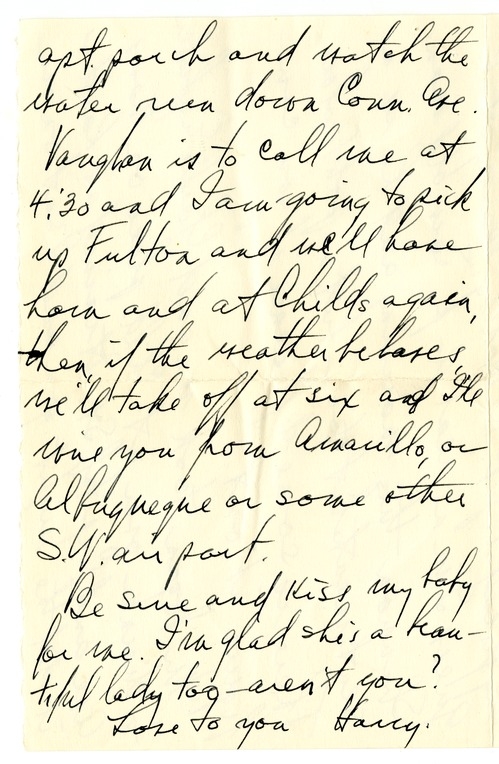 apt. porch and watch the
water run down Conn. Ave.
Vaughan is to call me at
4:30 and I am going to pick
up Fulton and we'll have
ham and at Childs again,
then, if the weather behaves,
we'll take off at six and I'll
wire you from Amarillo, or
Albuquerque or some other
S.W. air port.
Be sure and kiss my baby
for me. I'm glad she's a beau-
tiful lady too—aren't you?
Love to you Harry.